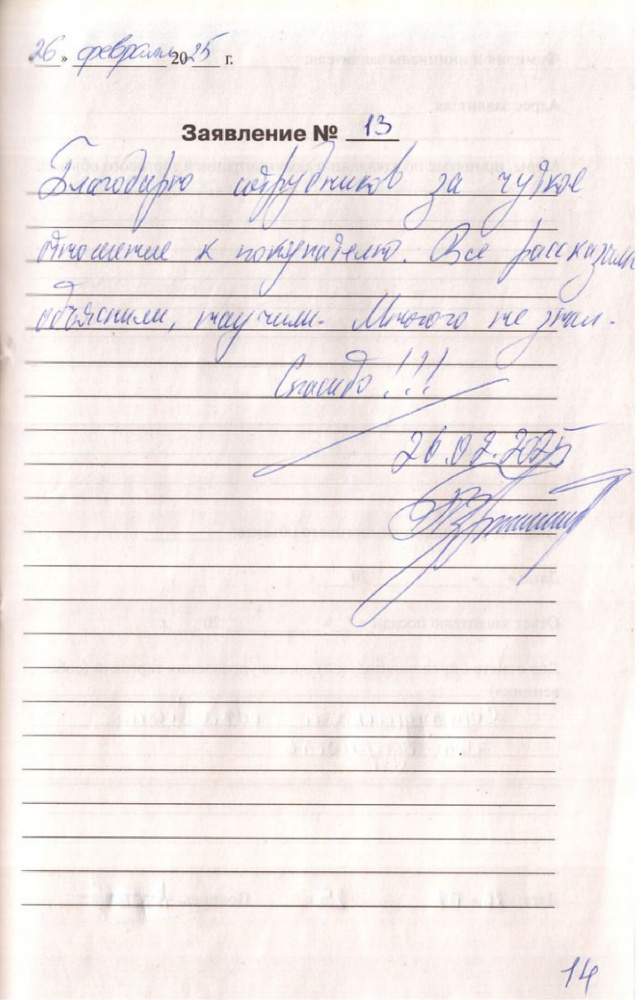 «26» февраля 2025 г.
Заявление № 13
Благодарю сотрудников за чуткое
отношение к покупателю. Все рассказали
объяснили, научили. Многого не знал.
Спасибо!!!
26.02.2025
14